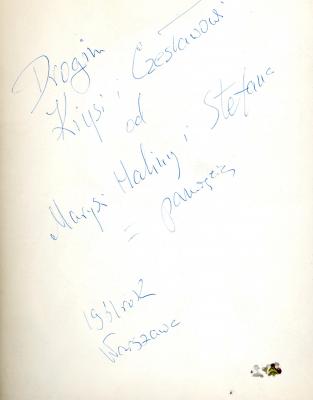 Drogim
Krysi i Czesławowi
od
Marysi Haliny i Stefana
= pamięcią
Warszawa